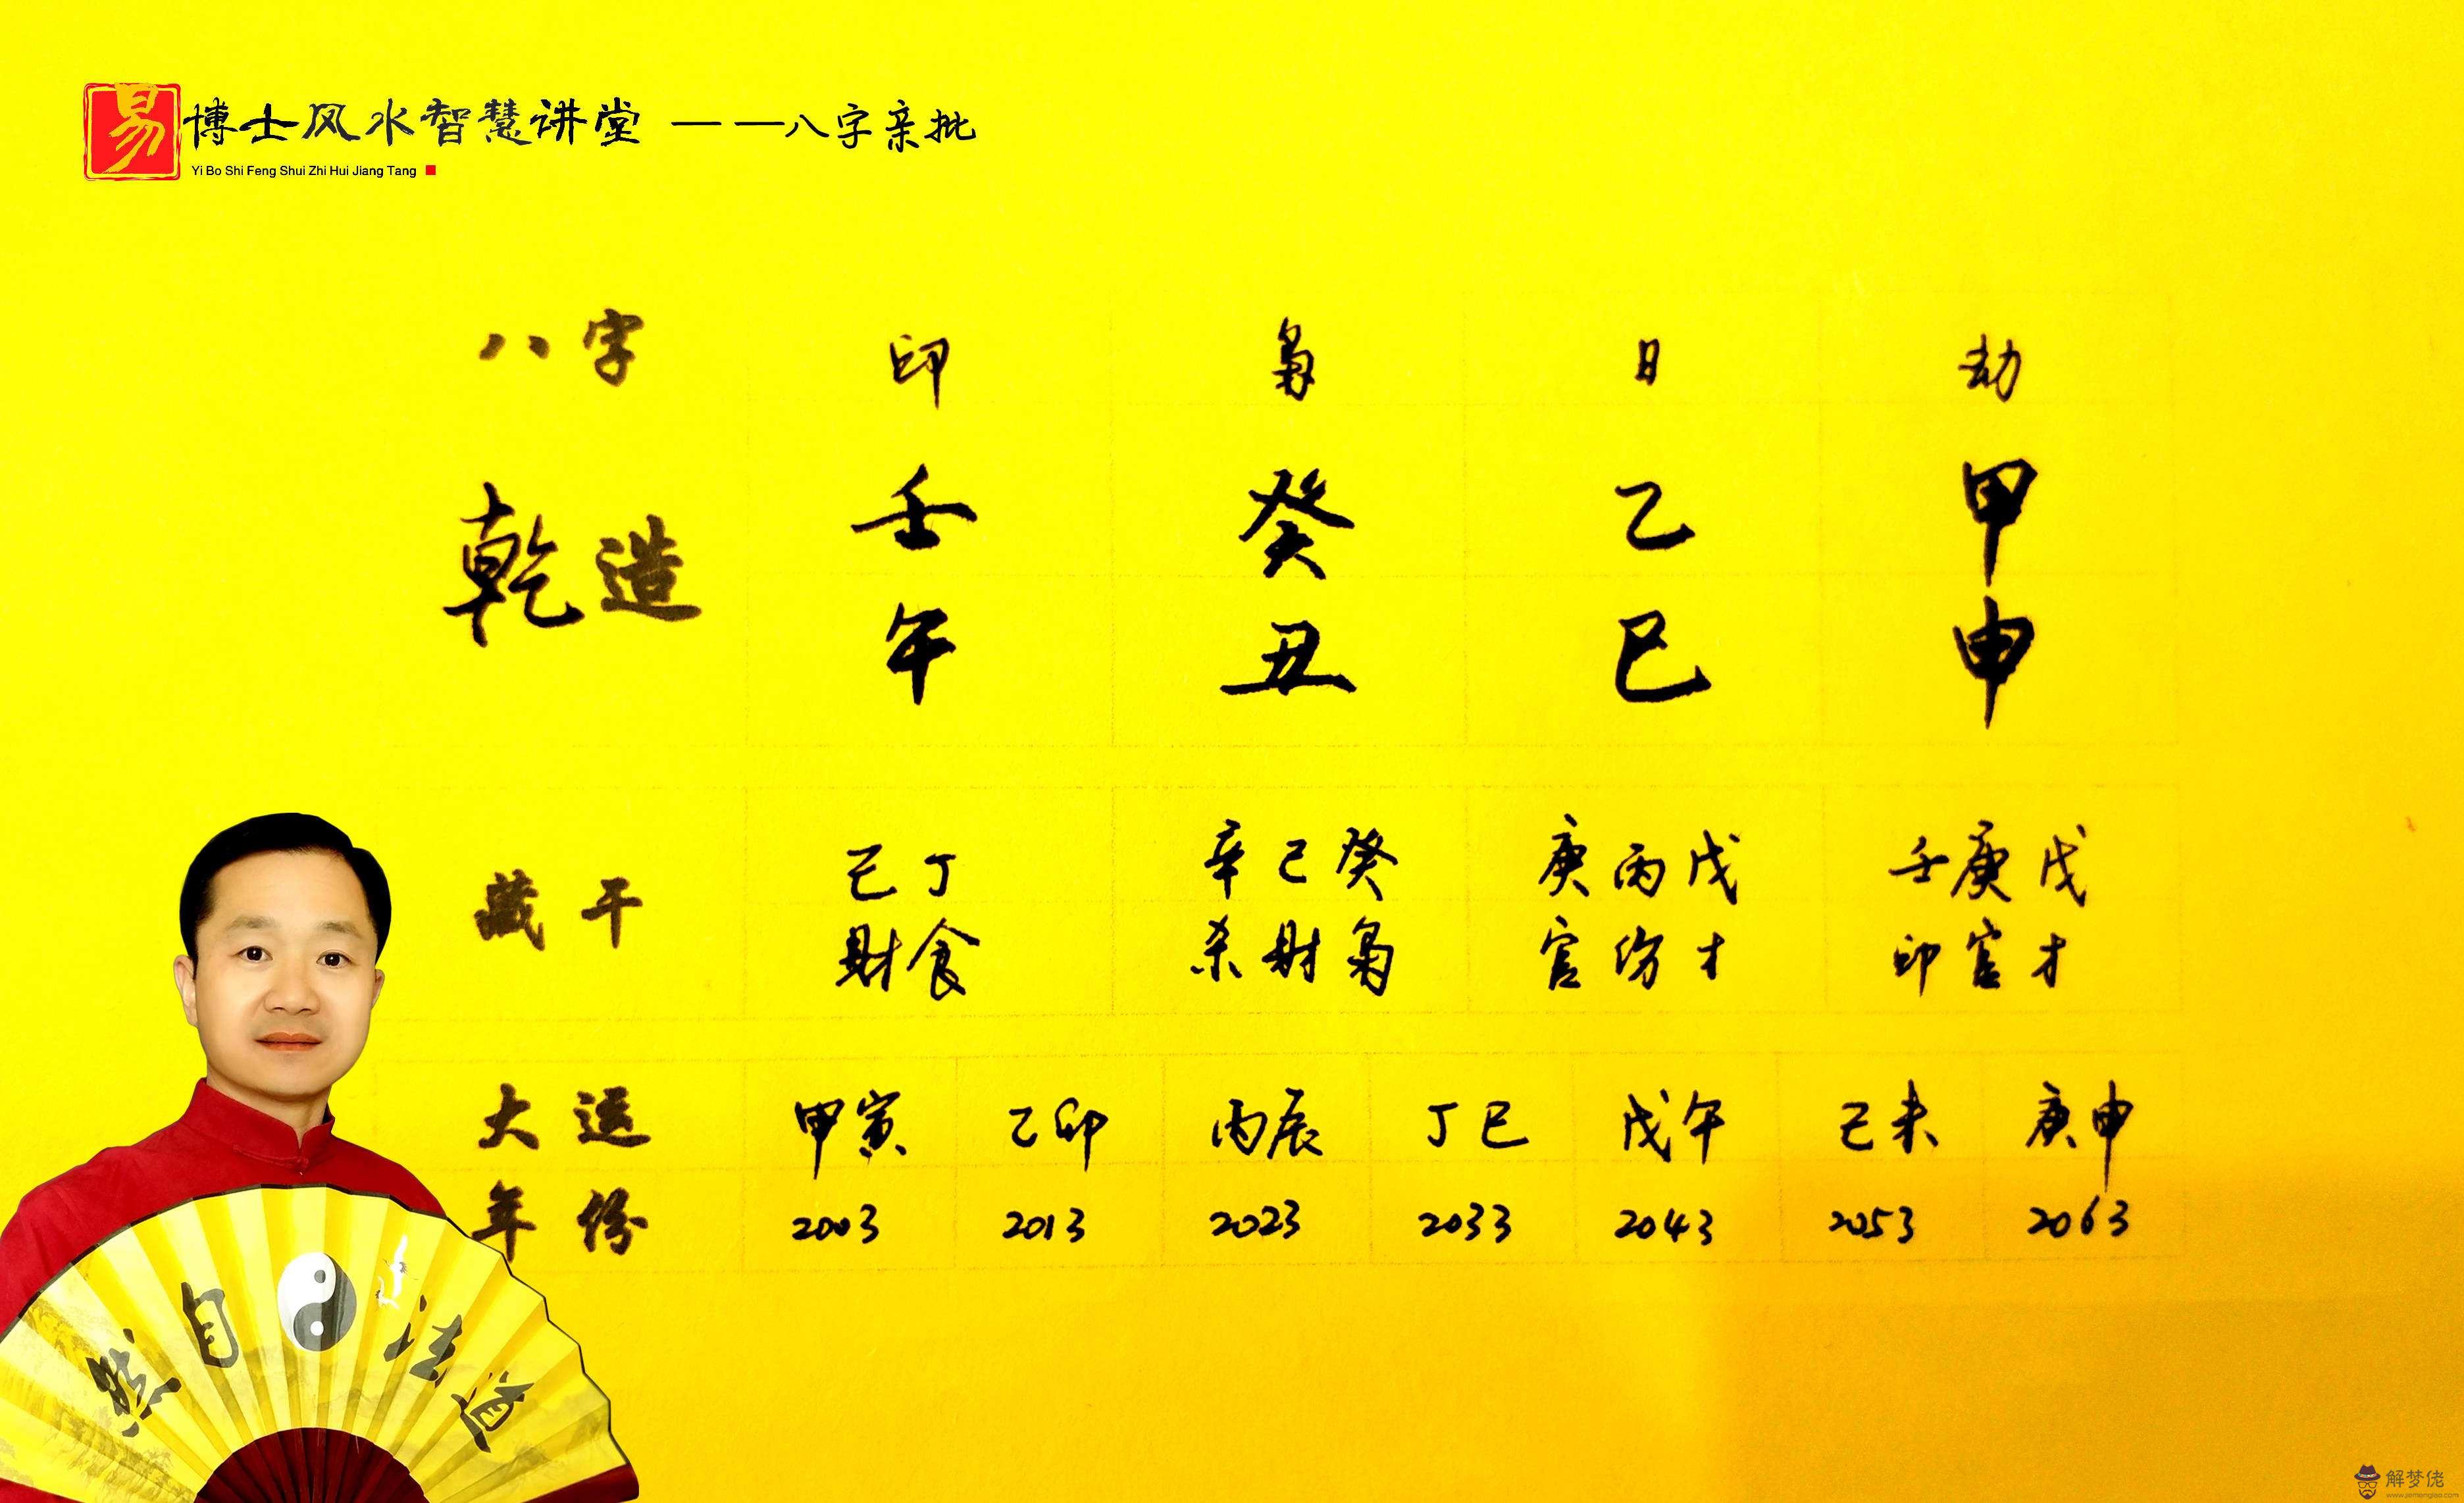 易博士风水智慧讲堂 ——八字亲批
Yi Bo Shi Feng Shui Zhi Hui Jiang Tang
八字 印 枭 日 劫
乾造 壬 癸 乙 甲
午 丑 巳 申
藏干 己丁 辛己癸 庚丙戊 壬庚戊
财食 杀财枭 官伤才 印官才
大运 甲寅 乙卯 丙辰 丁巳 戊午 己未 庚申
年份 2003 2013 2023 2033 2043 2053 2063
然自法道
解梦佬